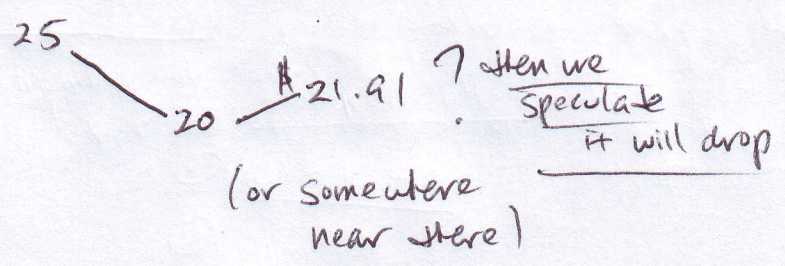 25
20
$21.91 ? then we
speculate
it will drop
(or somewhere
near there)